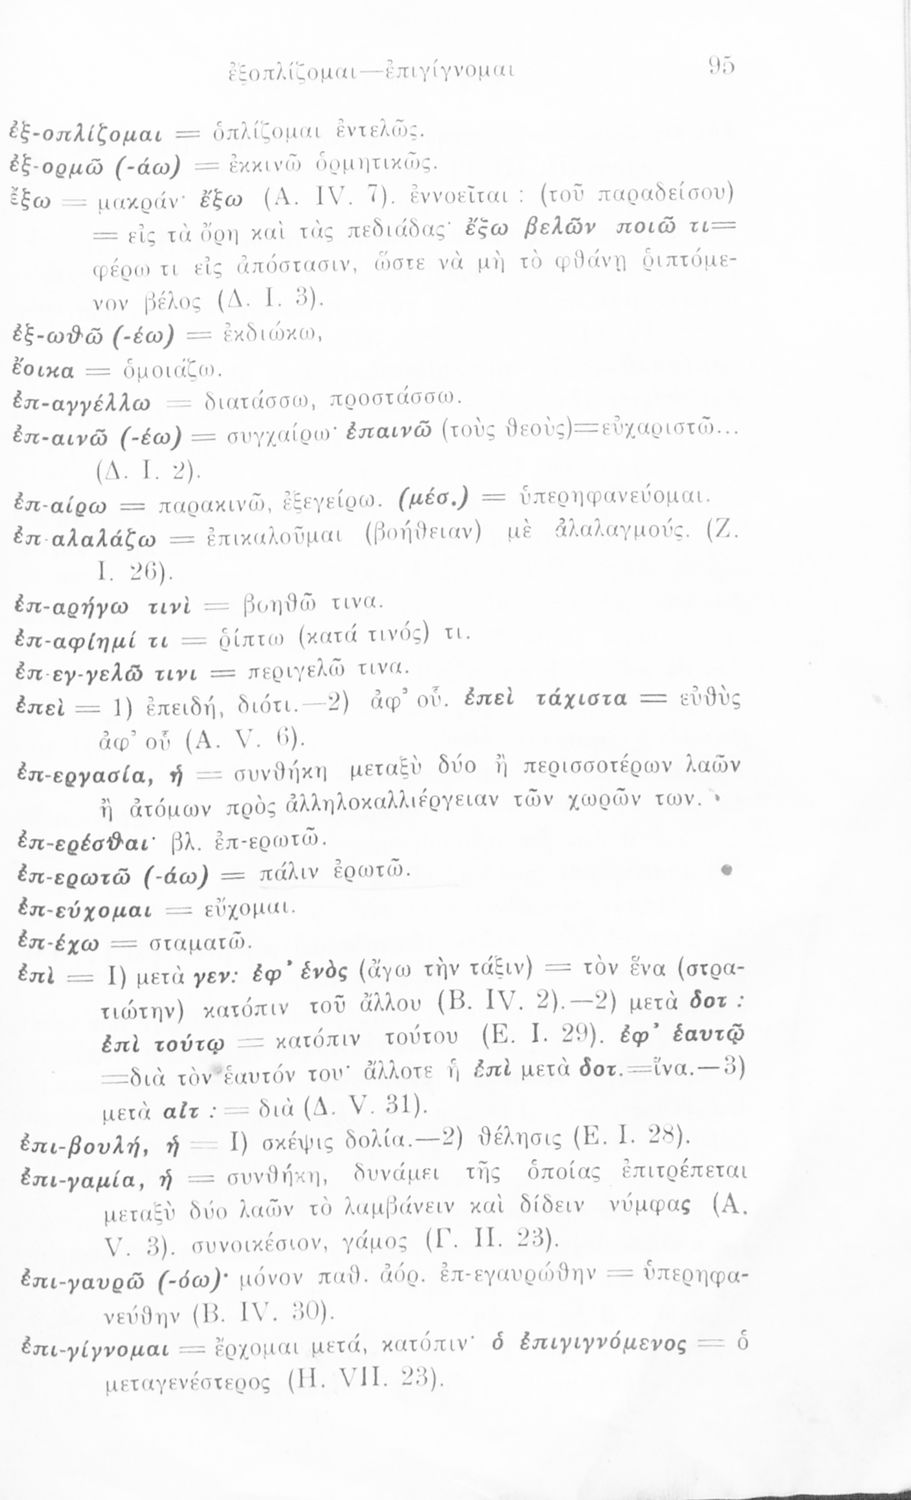 ἐξοπλίζομαι—ἐπιγίγνομαι 95
ἐξ-οπλίζομαι = ὁπλίζομαι ἐντελῶς.
ἐξ-ορμῶ (-άω) = ἐκκινῶ ὁρμητικῶς.
ἔξω = μακράν· ἔξω (Α. IV. 7). ἐννοεῖται : (τοῦ παραδείσου)
= εἰς τὰ ὄρη καὶ τὰς πεδιάδας· ἔξω βελῶν ποιῶ τι=
φέρω τι εἰς ἀπόστασιν, ὥστε νὰ μὴ τὸ φθάνῃ ῥιπτόμε-
νον βέλος (Δ. I. 3).
ἐξ-ωθῶ (-έω) = ἐκδιώκω,
ἔοικα = ὁμοιάζω.
ἐπ-αγγέλλω = διατάσσω, προστάσσω.
ἐπ-αινῶ (-έω) = συγχαίρω· ἐπαινῶ (τοὺς θεοὺς)=εὐχαριστῶ...
(Δ. I. 2).
ἐπ-αίρω = παρακινῶ, ἐξεγείρω. (μέσ.) = ὑπερηφανεύομαι.
ἐπ-αλαλάζω = ἐπικαλοῦμαι (βοήθειαν) μὲ ἀλαλαγμούς. (Ζ.
I. 26).
ἐπ-αρήγω τινὶ = βοηθῶ τινα.
ἐπ-αφίημί τι = ῥίπτω (κατά τινός) τι.
ἐπ-εγ-γελῶ τινι = περιγελῶ τινα.
ἐπεὶ = 1) ἐπειδή, διότι.—2) ἀφ’ οὗ. ἐπεὶ τάχιστα = εὐθὺς
ἀφ’ οὗ (Α. V. 6).
ἐπ-εργασία, ἡ = συνθήκη μεταξὺ δύο ἢ περισσοτέρων λαῶν
ἢ ἀτόμων πρὸς ἀλληλοκαλλιέργειαν τῶν χωρῶν των.
ἐπ-ερέσθαι· βλ. ἐπ-ερωτῶ.
ἐπ-ερωτῶ (-άω) = πάλιν ἐρωτῶ.
ἐπ-εύχομαι = εὔχομαι.
ἐπ-έχω = σταματῶ.
ἐπὶ = I) μετὰ γεν: ἐφ’ ἑνὸς (ἄγω τὴν τάξιν) = τὸν ἕνα (στρα-
τιώτην) κατόπιν τοῦ ἄλλου (Β. IV. 2).—2) μετὰ δοτ :
ἐπὶ τούτῳ = κατόπιν τούτου (Ε. I. 29). ἐφ’ ἑαυτῷ
=διὰ τὸν ἑαυτόν του· ἄλλοτε ἡ ἐπὶ μετὰ δοτ.=ἵνα.—3)
μετὰ αἰτ : = διὰ (Δ. V. 31).
ἐπι-βουλή, ἡ = I) σκέψις δολία.—2) θέλησις (Ε. I. 28).
ἐπι-γαμία, ἡ = συνθήκη, δυνάμει τῆς ὁποίας ἐπιτρέπεται
μεταξὺ δύο λαῶν τὸ λαμβάνειν καὶ δίδειν νύμφας (Α.
V. 3). συνοικέσιον, γάμος (Γ. II. 23).
ἐπι-γαυρῶ (-όω)· μόνον παθ. ἀόρ. ἐπ-εγαυρώθην = ὑπερηφα-
νεύθην (Β. IV. 30).
ἐπι-γίγνομαι = ἔρχομαι μετά, κατόπιν· ὁ ἐπιγιγνόμενος = ὁ
μεταγενέστερος (Η. VII. 23).